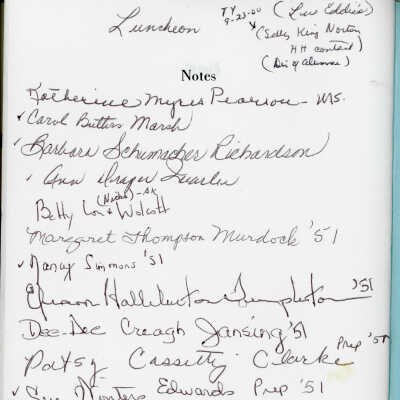 Luncheon
TY
9-23-00
(Lew Eddies)
(Sally King Norton
HH contact)
(Dir of Alumnae)
Notes
Katherine Myres Pearson - MS.
✓ Carol Butters Marsh
✓ Barbara Schumacher Richardson
Ann Draper
Betty Lou (Nichols) - AK Wolcott
Margaret Thompson Murdock '51
✓ Nancy Simmons '51
Halliburton Templeton '51
Dee-Dee Creagh Jansing '51
Patsy Cassitty Clarke Prep '51
✓ Sue Winters Edwards Prep '51